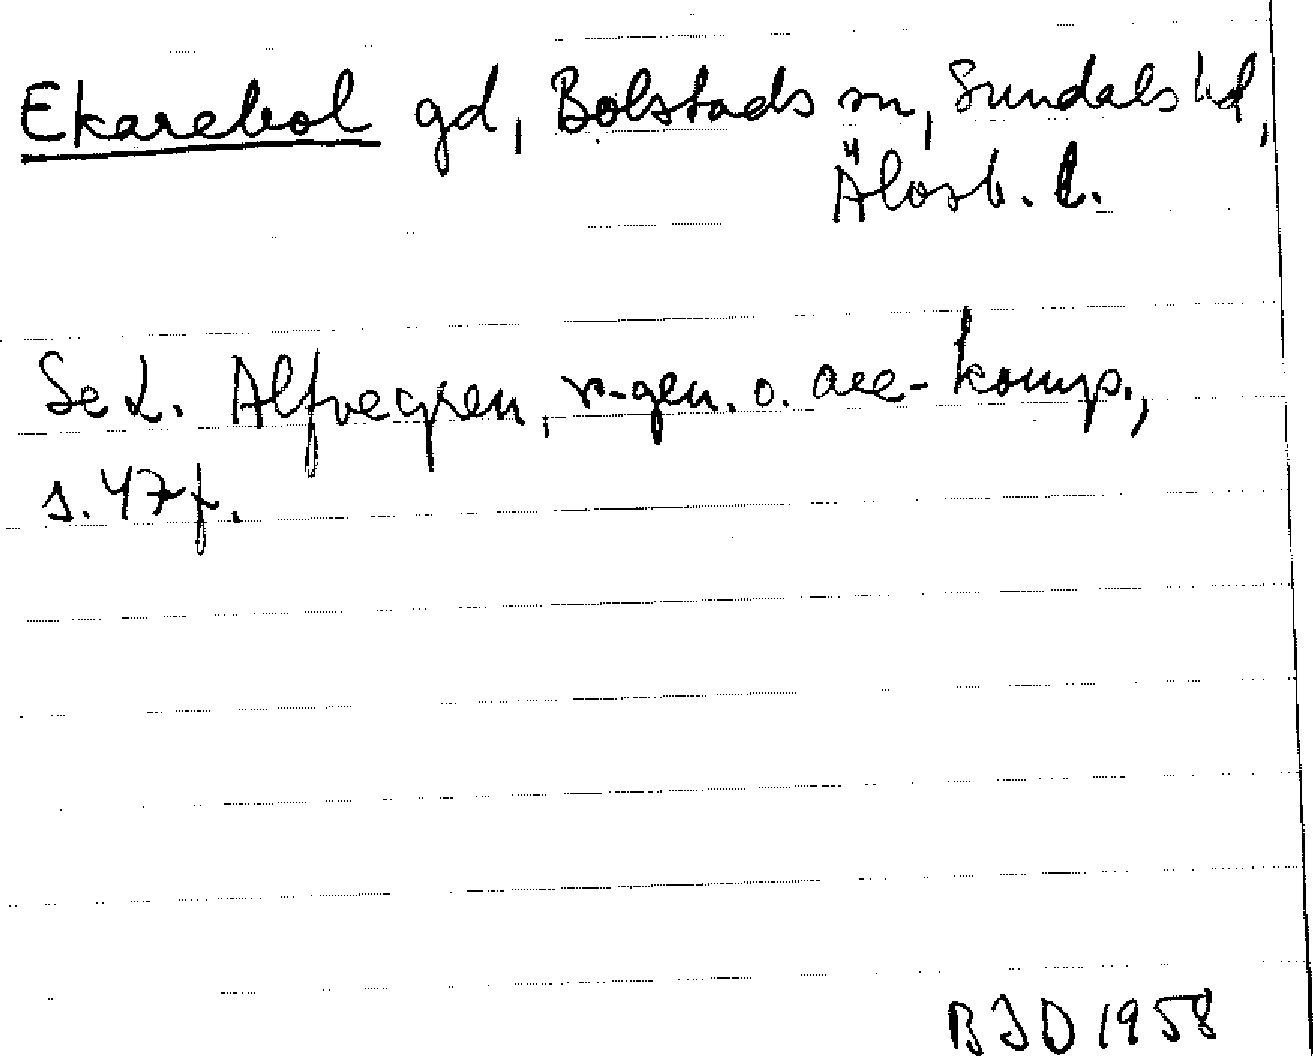 Ekarebol gd, Bolstads sn, Sundals hd,
Älvsb. l.
Se L. Alfvegren, r-gen. o. are-komp.,
s. 47 f.
BJD 1958